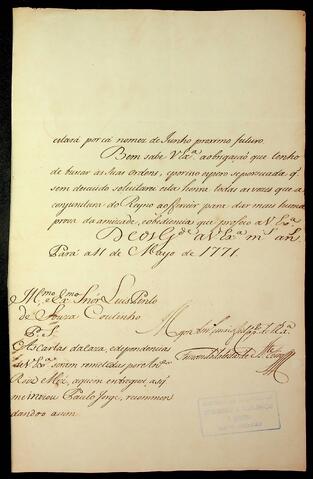 estará por cá no mez de Junho proximo futuro.
Bem sabe V. Exª. a obrigação que tenho
de buscar as suas ordens, e por isso espero se persuada q'.
sem descuido solicitarei esta honra todas as vezes que a
conjuntura do Reyno a offerecer para dar mais huma
prova da amizade, e obediencia que professo a V. Exª.
Deos Gde. a V. Exª. ms. ans.
Pará a 11 de Mayo de 1771.
Illmo. e Exmo. Snor. Luis Pinto
de Souza Coutinho
P. S.
As cartas da caza, e dependencias
de V. Exª. seram remetidas por Anto.
Roiz
a quem entreguei, assi
Paulo Jorge, recommen
dando o asim.